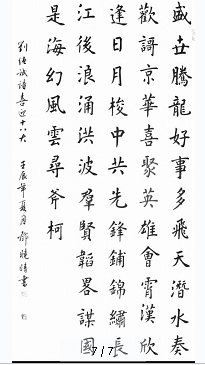 盛世騰龍好事多飛天潛水奏
歡謌京華喜聚英雄會霄漢欣
逢日月梭中共先鋒鋪錦繡長
江後浪涌洪波羣賢韜畧謀國
是海幻風雲尋斧柯
劉經誠詩喜迎十八大 壬辰年夏月 鄒曉靖書
7 / 7